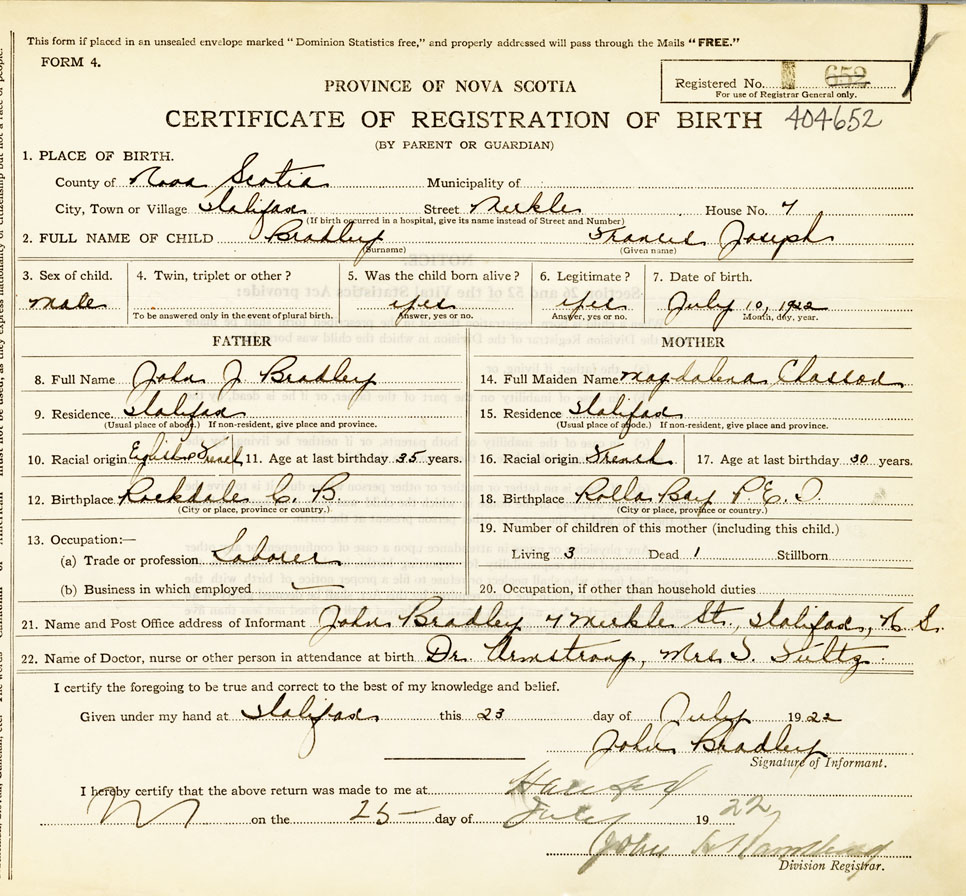 This form if placed in an unsealed envelope marked "Dominion Statistics free," and properly addressed will pass through the Mails "FREE."
FORM 4.
Registered No. 652
For use of Registrar General only.
PROVINCE OF NOVA SCOTIA
CERTIFICATE OF REGISTRATION OF BIRTH 404652
(BY PARENT OR GUARDIAN)
1. PLACE OF BIRTH.
County of Nova Scotia Municipality of
City, Town or Village Halifax Street Merkle House No. 7
(If birth occurred in a hospital, give its name instead of Street and Number)
2. FULL NAME OF CHILD Bradley Francis Joseph
(Surname) (Given name)
3. Sex of child. 4. Twin, triplet or other? 5. Was the child born alive? 6. Legitimate? 7. Date of birth.
male yes yes July 10, 1922
To be answered only in the event of plural birth. Answer, yes or no. Answer, yes or no. Month, day, year.
FATHER MOTHER
8. Full Name John J. Bradley 14. Full Maiden Name Magdalena
9. Residence. Halifax 15. Residence Halifax
(Usual place of abode.) If non-resident, give place and province. (Usual place of abode.) If non-resident, give place and province.
10. Racial origin French 11. Age at last birthday 35 years. 16. Racial origin French 17. Age at last birthday 30 years.
12. Birthplace Rockdale C. B. 18. Birthplace Rollo Bay P. E. I.
(City or place, province or country.) (City or place, province or country.)
13. Occupation:— 19. Number of children of this mother (including this child.)
(a) Trade or profession Laborer Living 3 Dead 1 Stillborn
(b) Business in which employed 20. Occupation, if other than household duties
21. Name and Post Office address of Informant John Bradley 7 Merkle St., Halifax, N. S.
22. Name of Doctor, nurse or other person in attendance at birth Dr. Armstrong, Mrs. Fultz
I certify the foregoing to be true and correct to the best of my knowledge and belief.
Given under my hand at Halifax this 23 day of July 1922
John Bradley
Signature of Informant.
I hereby certify that the above return was made to me at Halifax
on the 25 day of July 1922
John
Division Registrar.